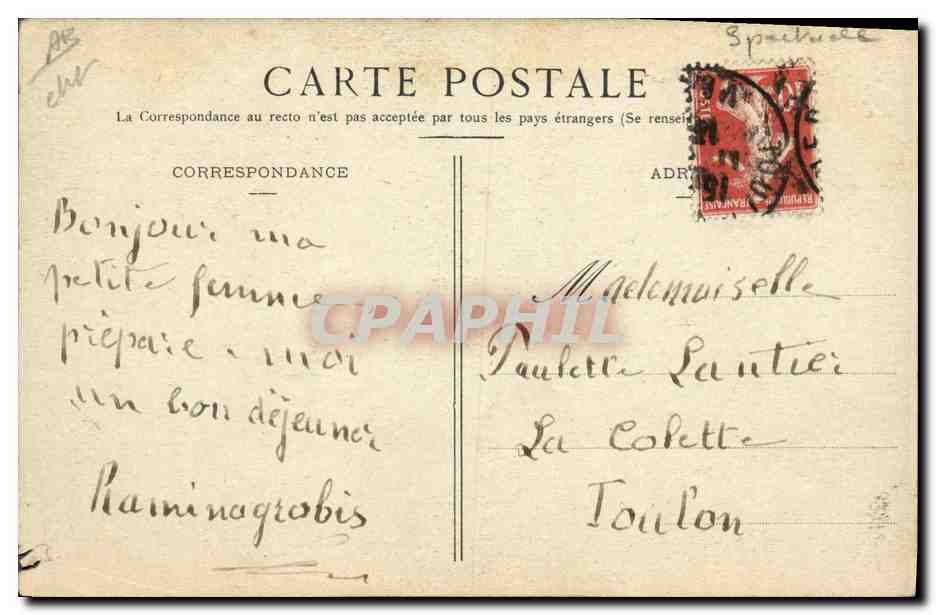 AB
Spectacle
CARTE POSTALE
La Correspondance au recto n'est pas acceptée par tous les pays étrangers (Se rensei
CORRESPONDANCE
ADR
REPUBLIQUE FRANÇAISE
POSTES
Bonjour ma
petite femme
prépare-moi
un bon déjeuner
Raminagrobis
Mademoiselle
Paulette Lantier
La Colette
Toulon
CPAPHIL